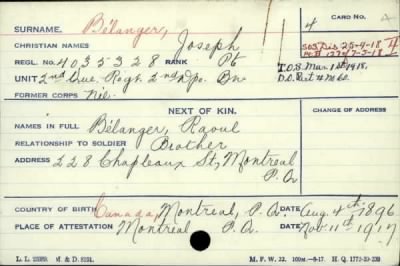 SURNAME. Bélanger,
CARD No.
4
CHRISTIAN NAMES Joseph
REGL. No. 4035328 RANK Pt
UNIT 2nd Que. Regt. 2nd Dpo. Bn
FORMER CORPS Nil.
S.O.S. Dis 25-4-18
T.O.S. Mar. 1st 1918.
D.O. Part II No 60.
NEXT OF KIN.
CHANGE OF ADDRESS
NAMES IN FULL Bélanger, Raoul
RELATIONSHIP TO SOLDIER Brother
ADDRESS 228 Chapleaux St, Montreal
P.Q.
COUNTRY OF BIRTH Canada, Montreal, P.Q. DATE Aug. 4th 1896
PLACE OF ATTESTATION Montreal P.Q. DATE Nov 11th 1917
M. & D. M. F. W. 22.